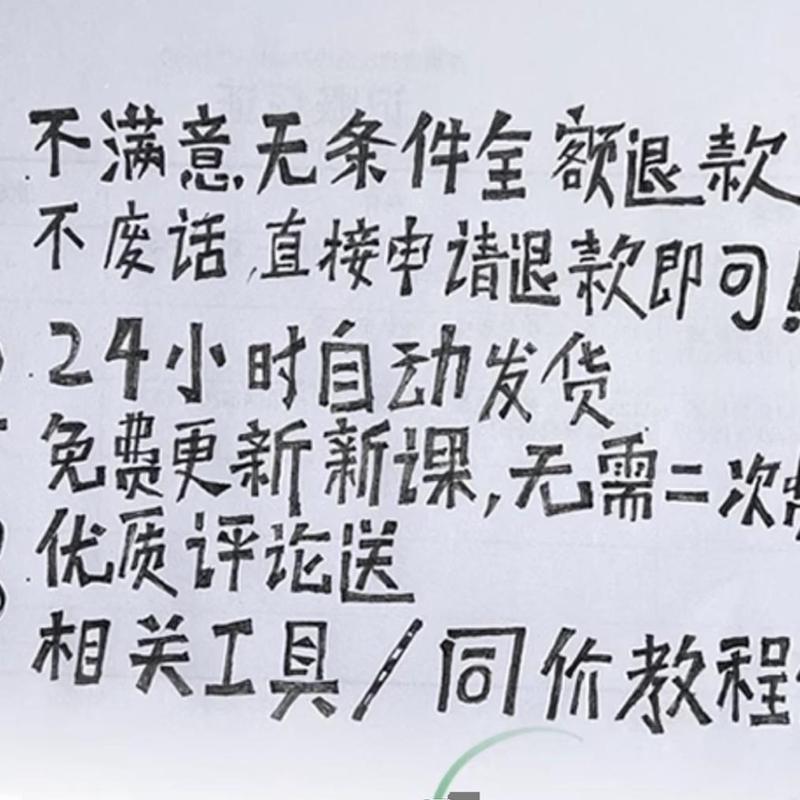 不满意,无条件全额退款
不废话,直接申请退款即可!
24小时自动发货
免费更新新课,无需二次
优质评论送
相关工具/同价教程